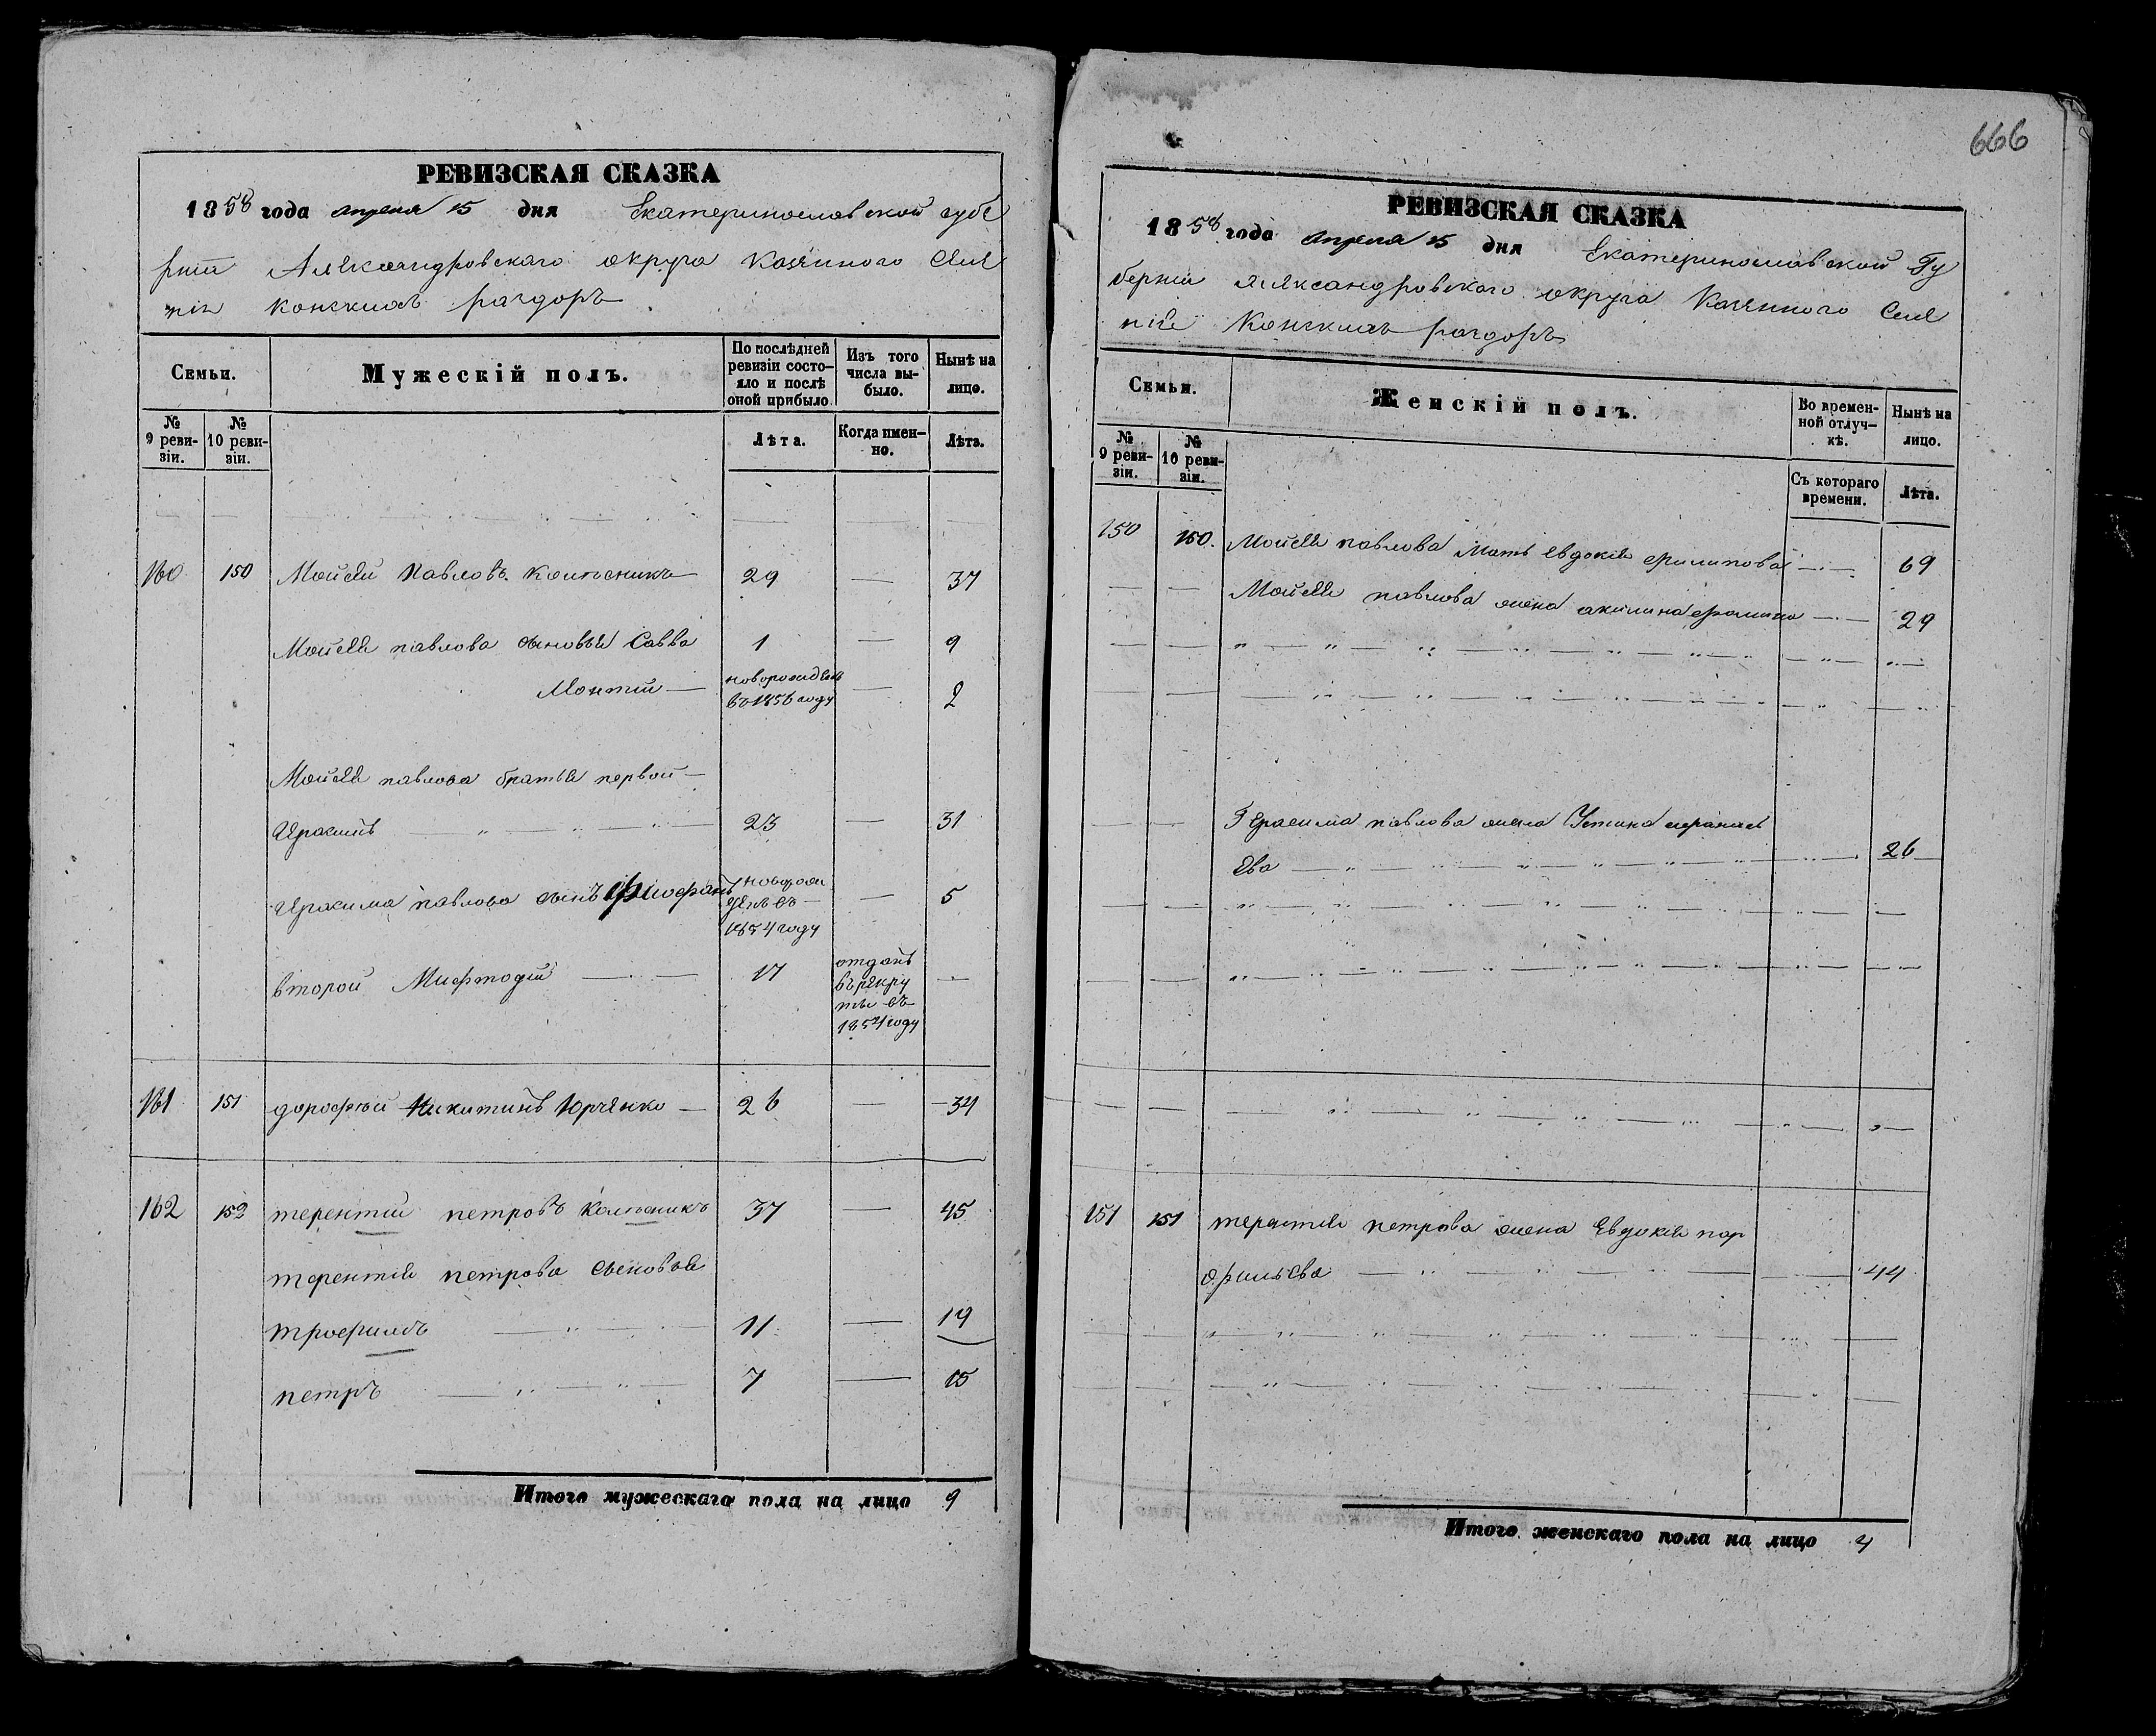 666
РЕВИЗСКАЯ СКАЗКА
1858 года апреля 15 дня Екатеринославской губе
рніи Александровскаго округа Казеннаго Селе
нія Конскихъ раздоръ
Семьи.
Мужескій полъ.
По послѣдней ревизіи состояло и послѣ оной прибыло.
Изъ того числа выбыло.
Нынѣ на лицо.
№ 9 ревизіи.
№ 10 ревизіи.
Лѣта.
Когда именно.
Лѣта.
160 150 Мойсей Павловъ Колѣсникъ 29 — 37
Мойсея павлова сыновья Савва 1 — 9
новорожденъ
въ 1856 году — 2
Мойсея павлова братья первой —
23 — 31
павлова сынъ новорож
денъ въ — 5
1854 году
второй Мифтодій — 17 отданъ
въ рекру
ты въ
1854 году
161 151 дорофѣй Никитинъ Юрченко — 26 — 34
162 152 терентій петровъ Колѣсникъ 37 — 45
терентія петрова сыновья
трофимъ 11 — 19
петръ 7 — 15
Итого мужескаго пола на лицо 9
РЕВИЗСКАЯ СКАЗКА
1858 года апреля 15 дня Екатеринославской Гу
берніи Александровскаго округа Казеннаго Селе
нія Конскихъ раздоръ
Семьи.
Женскій полъ.
Во временной отлучкѣ.
Нынѣ на лицо.
№ 9 ревизіи.
№ 10 ревизіи.
Съ котораго времени.
Лѣта.
150 150. Мойсея павлова мать евдокія филипова — 69
Мойсея павлова жена акилина — 29
Герасима павлова жена Устина
ева 26
151 151 терентія петрова жена Евдокія пар
фильева 44
Итого женскаго пола на лицо 4